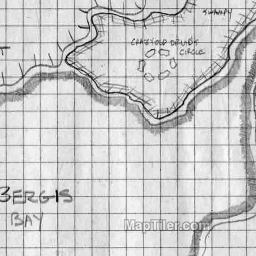 SWAMPY
CRAZY OLD DRUID'S
CIRCLE
T
BERGIS
BAY
MapTiler.com